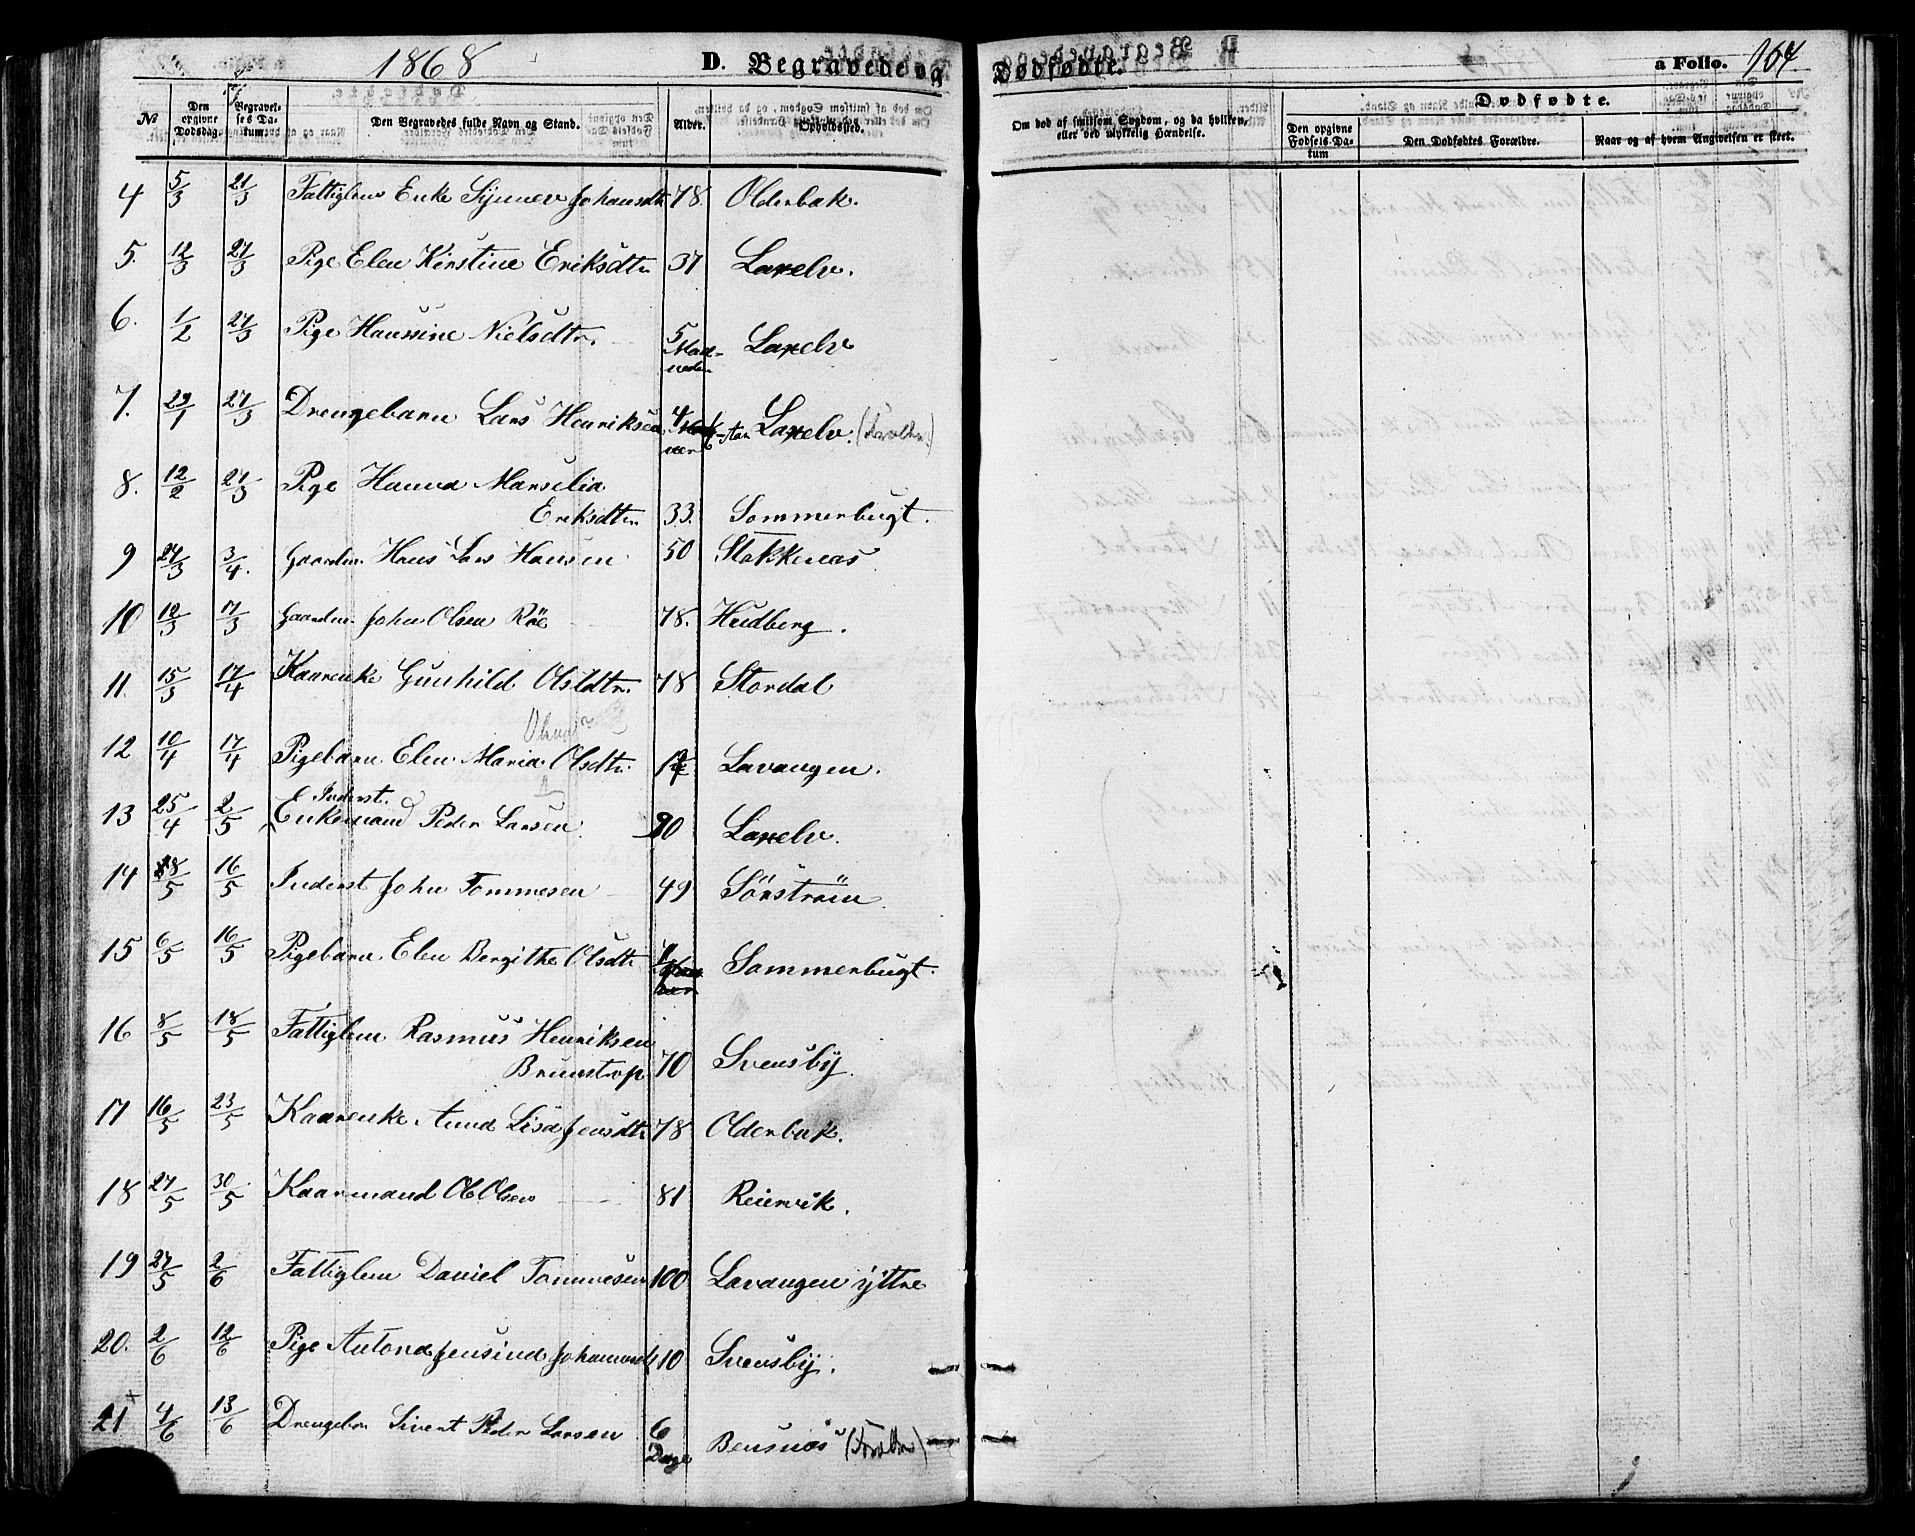 1868
D. Begravede og Dødfødte.
a Folio. 164
No
Den opgivne Dødsdag.
Begravelses Datum.
Den Begravedes fulde Navn og Stand.
Alder.
Opholdssted.
Om død af smitsom Sygdom, og da hvilken, eller ved ulykkelig Hændelse.
Dødfødte.
Den opgivne Fødsels-Datum
Den Dødfødtes Forældre.
Naar og af hvem Angivelsen er skeet.
4 5/3 21/3 Fattiglem Enke Synnev Johansdtr 78. Olderbak.
5. 12/3 27/3 Pige Elen Kirstine Eriksdtr. 37 Laxelv.
6. 1/2 27/3 Pige Hansine Nielsdtr. 5 Maaneder Laxelv
7. 29/1 27/3 Drengebarn Lars Henriksen 4 Laxelv.
8. 12/2 27/3 Pige Hanna Marselia
Eriksdtr. 33. Sommerbugt.
9 27/3 3/4. Gaardm. Hans Lars Hansen 50 Stokkenæs.
10 12/3 17/3 Gaardm. John Olsen Röe 78. Hudberg.
11. 15/3 17/4 Kaarenke Gunhild Olsdtr. 78 Stordal
12 10/4 17/4 Pigebarn Elen Maria Olsdtr. Lavangen.
Inderst.
13 25/4 2/5 Enkemand Peder Larsen 80 Laxelv.
14 18/5 16/5 Inderst John Tommesen 49 Sörström
15 6/5 16/5 Pigebarn Elen Bergithe Olsdtr Sommerbugt.
16 8/5 18/5 Fattiglem Rasmus Henriksen
Brunstrop 70 Svensby.
17 16/5 23/5 Kaarenke Anna Lisa Jensdtr 78 Olderbak.
18 27/5 30/5 Kaarmand Ol Olsen 81 Reiervik.
19 27/5 2/6 Fattiglem Daniel Tommesen 100 Lavangen ijttre
20. 2/6 12/6 Pige Antona Jensina Johannesd 10 Svensby.
21 4/6 13/6 Drengebn Sivert Peder Larsen 6 Dage Bensnæs